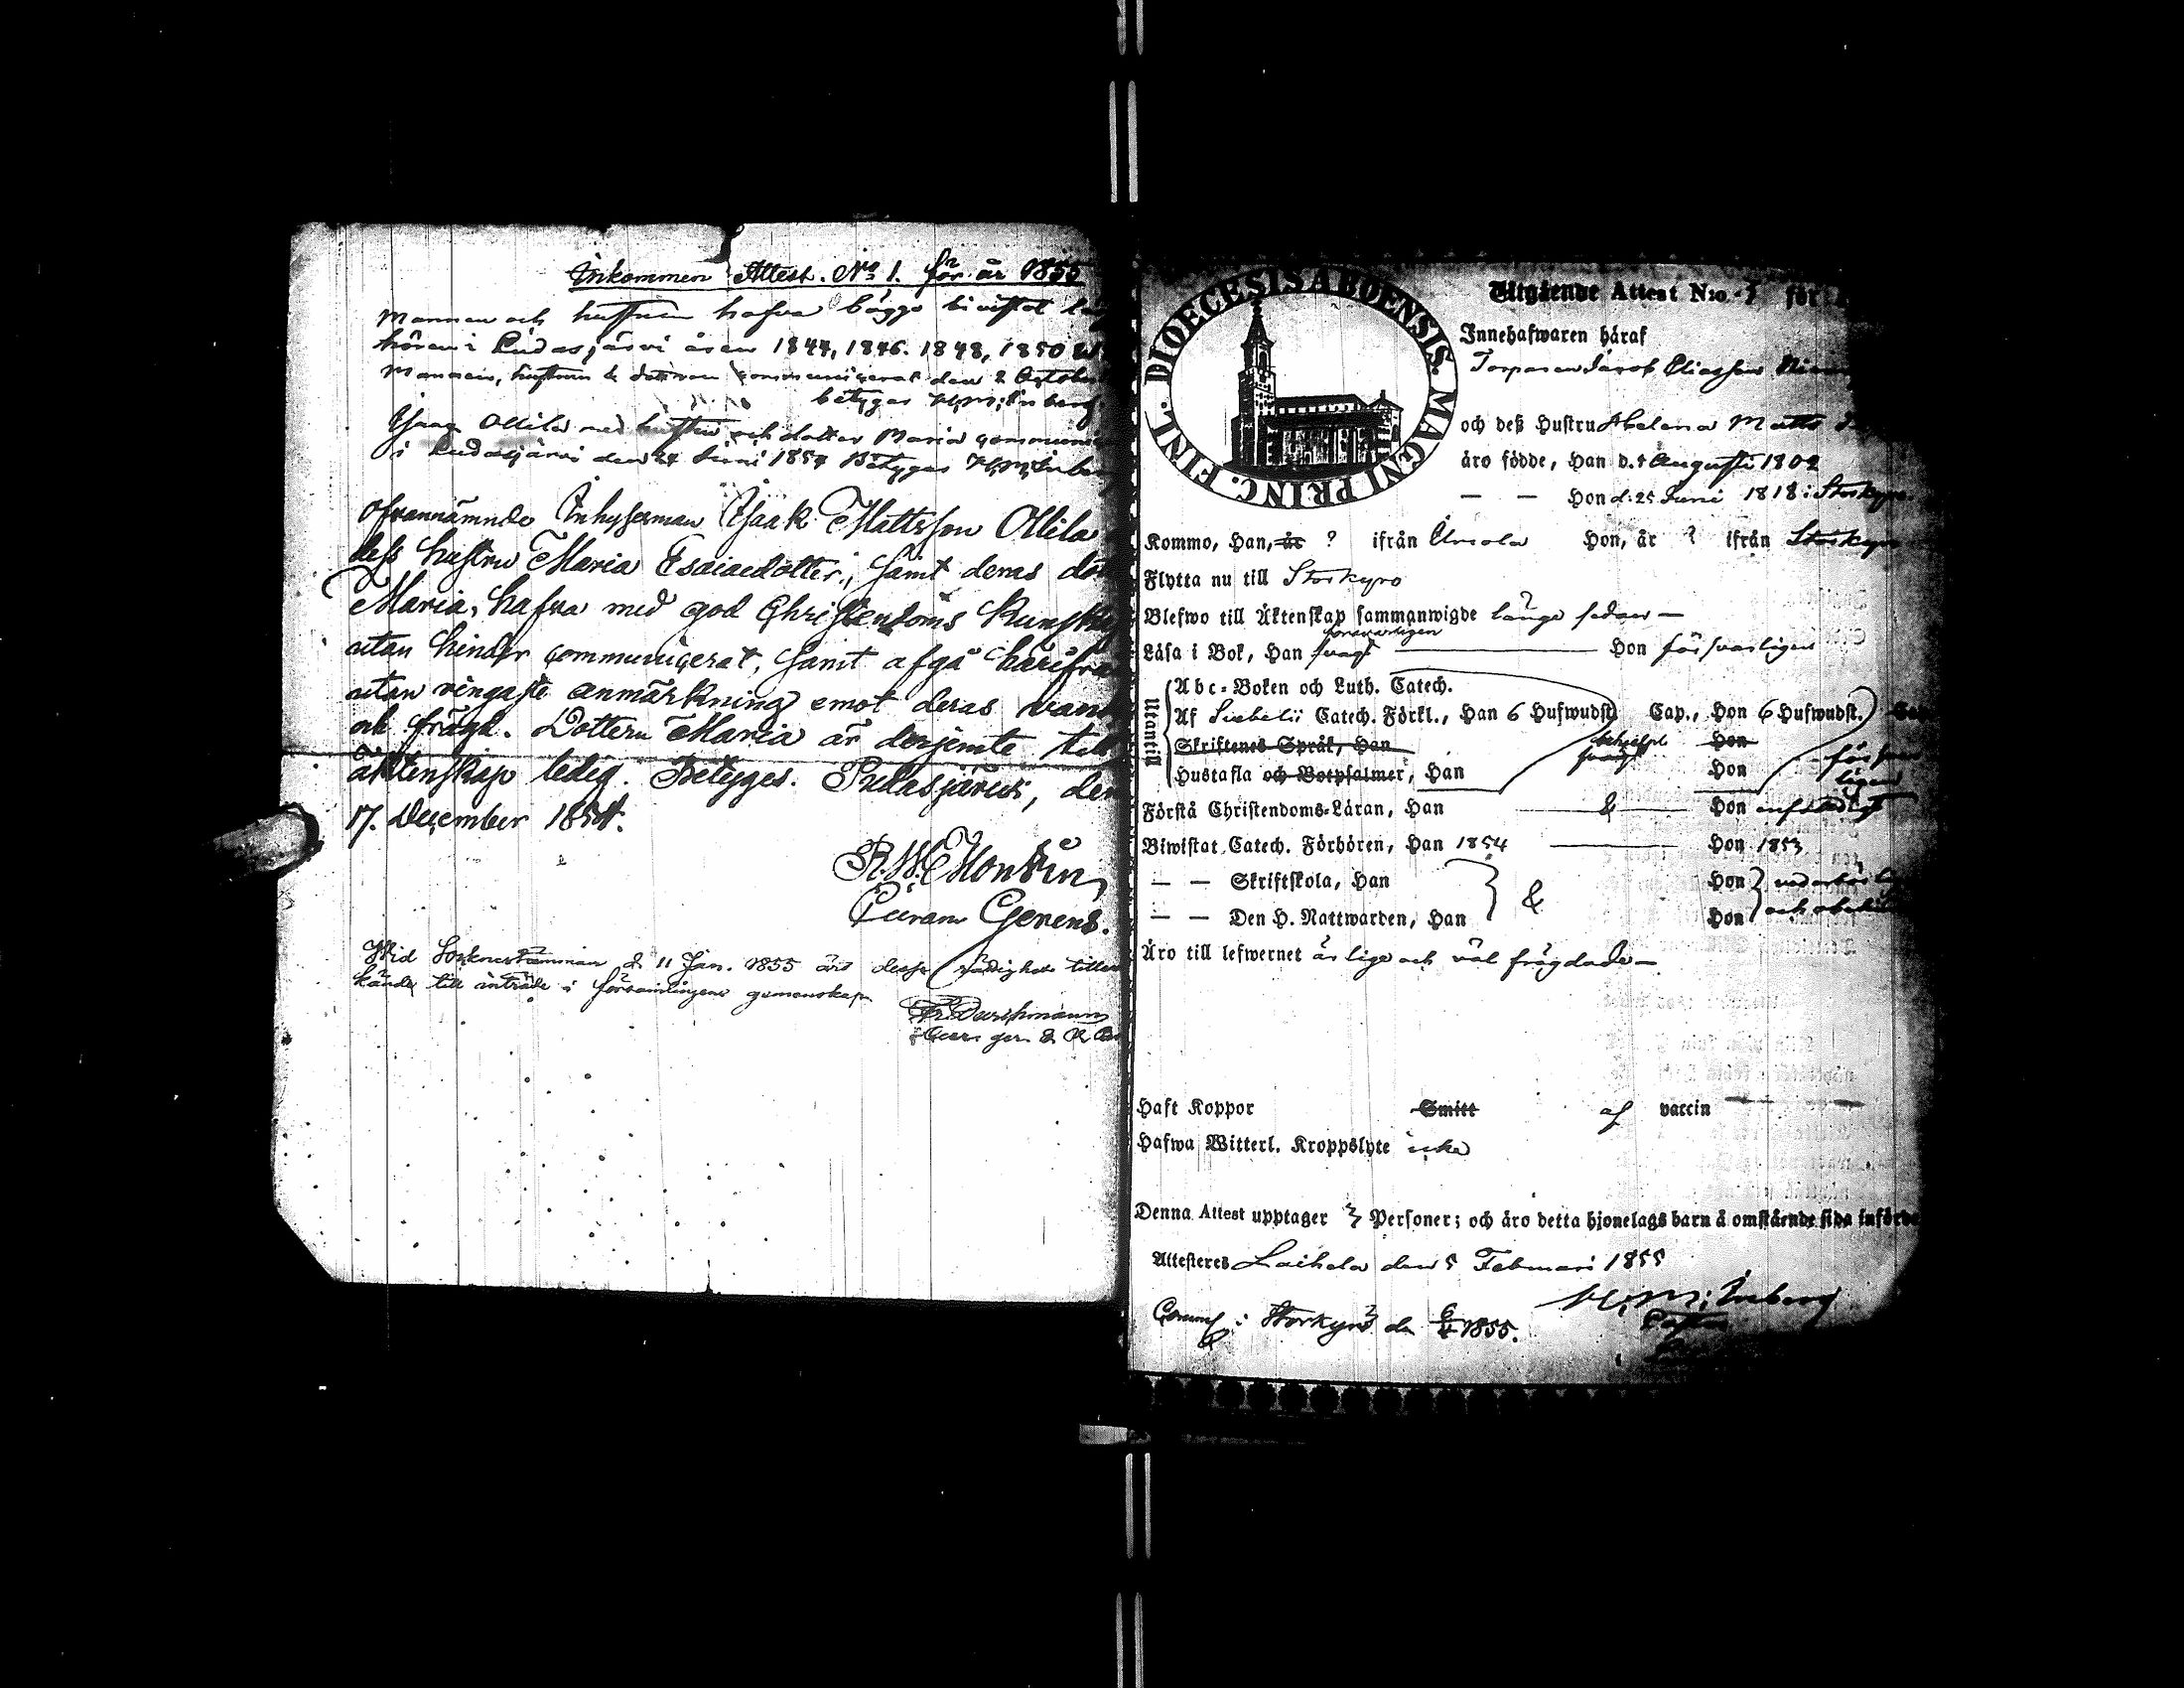 Inkommen Attest. No 1. för år 1855
Mannen och hustrun hafva bägge bivistat
hören i Pudasjärvi åren 1844, 1846. 1848, 1850
Mannen, hustrun & dottren communicerat den 2 October
betygar
Isaac Ollila med hustru och dotter Maria communi
i Pudasjärvi den 24 Juni 1854 Betygar
Ofvannämnde Inhysesman Isaak Mattsson Ollila
dess hustru Maria Esaiaedotter, samt deras
Maria, hafva med god Christendoms Kunsk
utan hinder communicerat, samt afgå härifrån
utan ringaste anmärkning emot deras vand
och frägd. Dottern Maria är derjemte till
äktenskap ledig. Betygges. Pudasjärvi, den
17. December 1854.
R. W. Montin
Curam Gerens.
Wid Sockenestämman d. 11 Jan. 1855 äro desse rådighet tiller
kända till inträde i församlingens gemenskap
DIOECESIS ABOENSIS. MAGNI PRINC. FINL.
Utgående Attest N:o 7 för
Innehafwaren häraf
Torparen Jacob Eliasson
och deß Hustru Helena Matts
äro födde, Han d. 5 Augusti 1802
— — Hon d. 25 Juni 1818 i Storkyro.
Kommo, Han, år ? ifrån Hon, år ? ifrån Storkyro
Flytta nu till Storkyro
Blefwo till Äktenskap sammanwigde länge sedan —
försvarligen
Läsa i Bok, Han svagt Hon försvarligen
Utantill
Abc-Boken och Luth. Catech.
Af Sirbelii Catech. Förkl., Han 6 Hufwudst. Cap., Hon 6 Hufwudst.
Skriftenes Språk, Han Hon
Hustafla och Botpsalmer, Han svagt Hon försvarligen
Förstå Christendoms-Läran, Han & Hon enfaldigt
Biwistat Catech. Förhören, Han 1854 Hon 1853
— — Skriftskola, Han & Hon
— — Den H. Nattwarden, Han Hon
Äro till lefwernet ärlige och väl frägdade —
Haft Koppor Smitt af vaccin
Hafwa Witterl. Kroppslyte icke
Denna Attest upptager 3 Personer; och äro detta hjonelags barn å omstående sida införde
Attesteres Laihela den 5 Februari 1855
Comm. i Storkyro d. 6/4 1855.